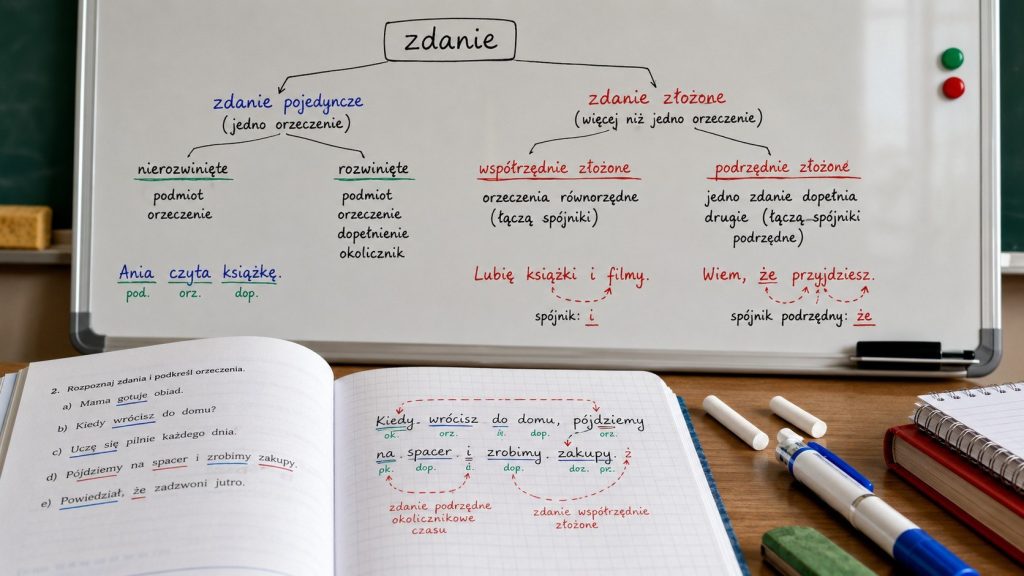 zdanie
zdanie pojedyncze
(jedno orzeczenie)
zdanie złożone
(więcej niż jedno orzeczenie)
nierozwinięte
podmiot
orzeczenie
rozwinięte
podmiot
orzeczenie
dopełnienie
okolicznik
współrzędnie złożone
orzeczenia równorzędne
(łączą spójniki)
podrzędnie złożone
jedno zdanie dopełnia
drugie (łączą spójniki
podrzędne)
Ania czyta książkę.
pod. orz. dop.
Lubię książki i filmy.
spójnik: i
Wiem, że przyjdziesz.
spójnik podrzędny: że
2. Rozpoznaj zdania i podkreśl orzeczenia.
a) Mama gotuje obiad.
b) Kiedy wrócisz do domu?
c) Uczę się pilnie każdego dnia.
d) Pójdziemy na spacer i zrobimy zakupy.
e) Powiedział, że zadzwoni jutro.
Kiedy wrócisz do domu, pójdziemy
ok. orz. dop. orz.
na . spacer . i zrobimy . zakupy . ż
pk. dop. dop.
zdanie podrzędne
okolicznikowe
czasu
zdanie współrzędnie
złożone